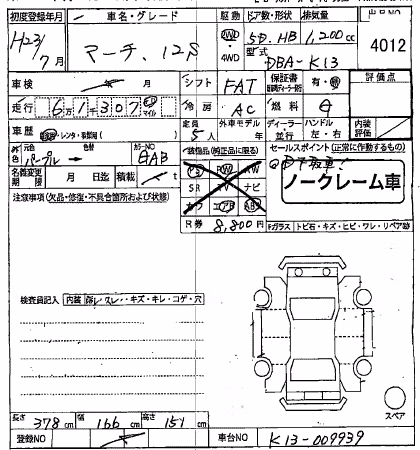 初度登録年月 車名・グレード 駆動 ドア数・形状 排気量 出品NO
H23/7月 マーチ. 12S 2WD ・4WD 5D. HB 1,200cc 4012
型式 DBA-K13
車検 年 月 シフト FAT 保証書 有・無 評価点
走行 6万1千307 km マイル 冷房 AC 燃料 ガ
車歴 自・レンタ・事業用( ) 定員 5人 外車モデル 年 ディーラー・並行 ハンドル 左・右 内装評価
元色 パープル → 色替 カラーNO GAB 装備品(純正品に限る) セールスポイント(正常に作動するもの)
PS PW AW
名義変更期限 月 日迄 積載 t SR TV ナビ ノークレーム車
カワ エアB ABS
注意事項(欠品・修復・不具合箇所および状態) R券 8,800円 Fガラス トビ石・キズ・ヒビ・ワレ・リペア跡
検査員記入 内装 キズ・キレ・コゲ・穴
スペア
長さ 378cm 幅 166cm 高さ 151cm
登録NO 車台NO K13-009939